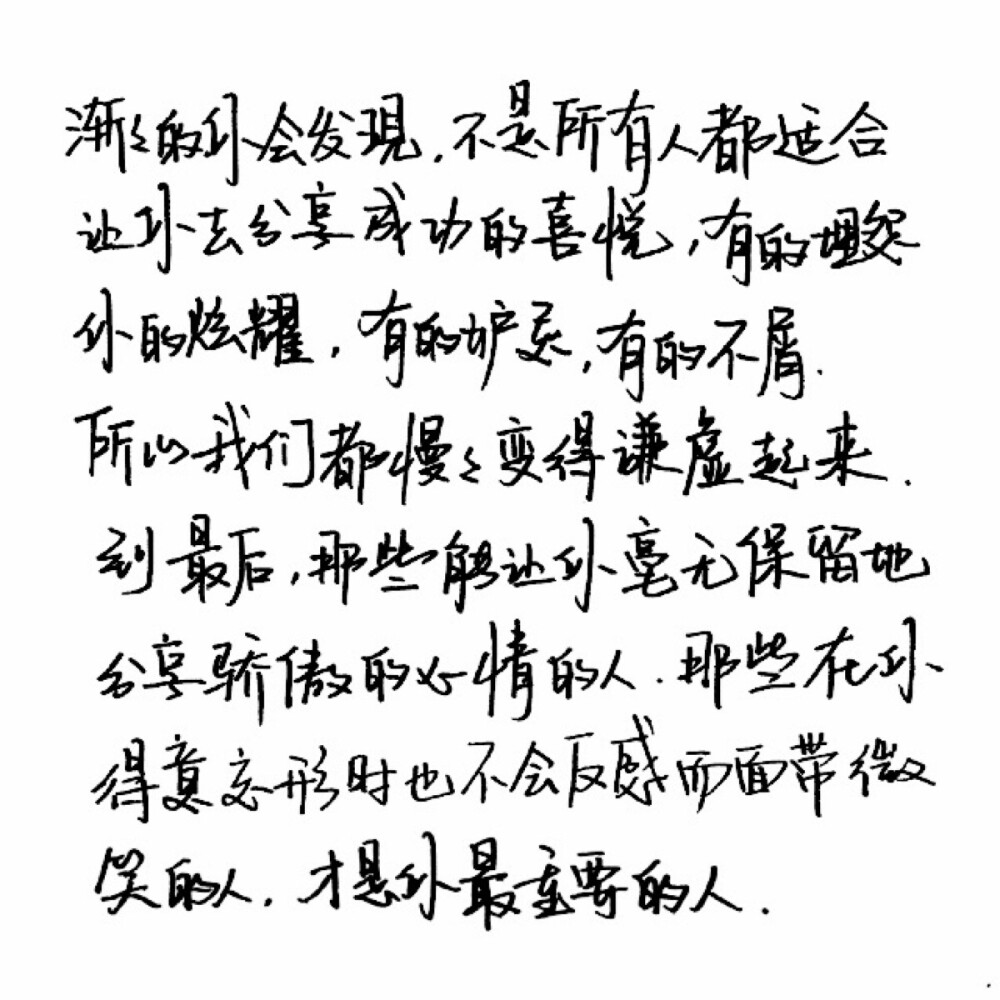 渐々的你会发现.不是所有人都适合
让你去分享成功的喜悦,有的埋怨
你的炫耀,有的妒忌,有的不屑.
所以我们都慢々变得谦虚起来.
到最后,那些能让你毫无保留地
分享骄傲的心情的人.那些在你
得意忘形时也不会反感而面带微
笑的人.才是你最重要的人.